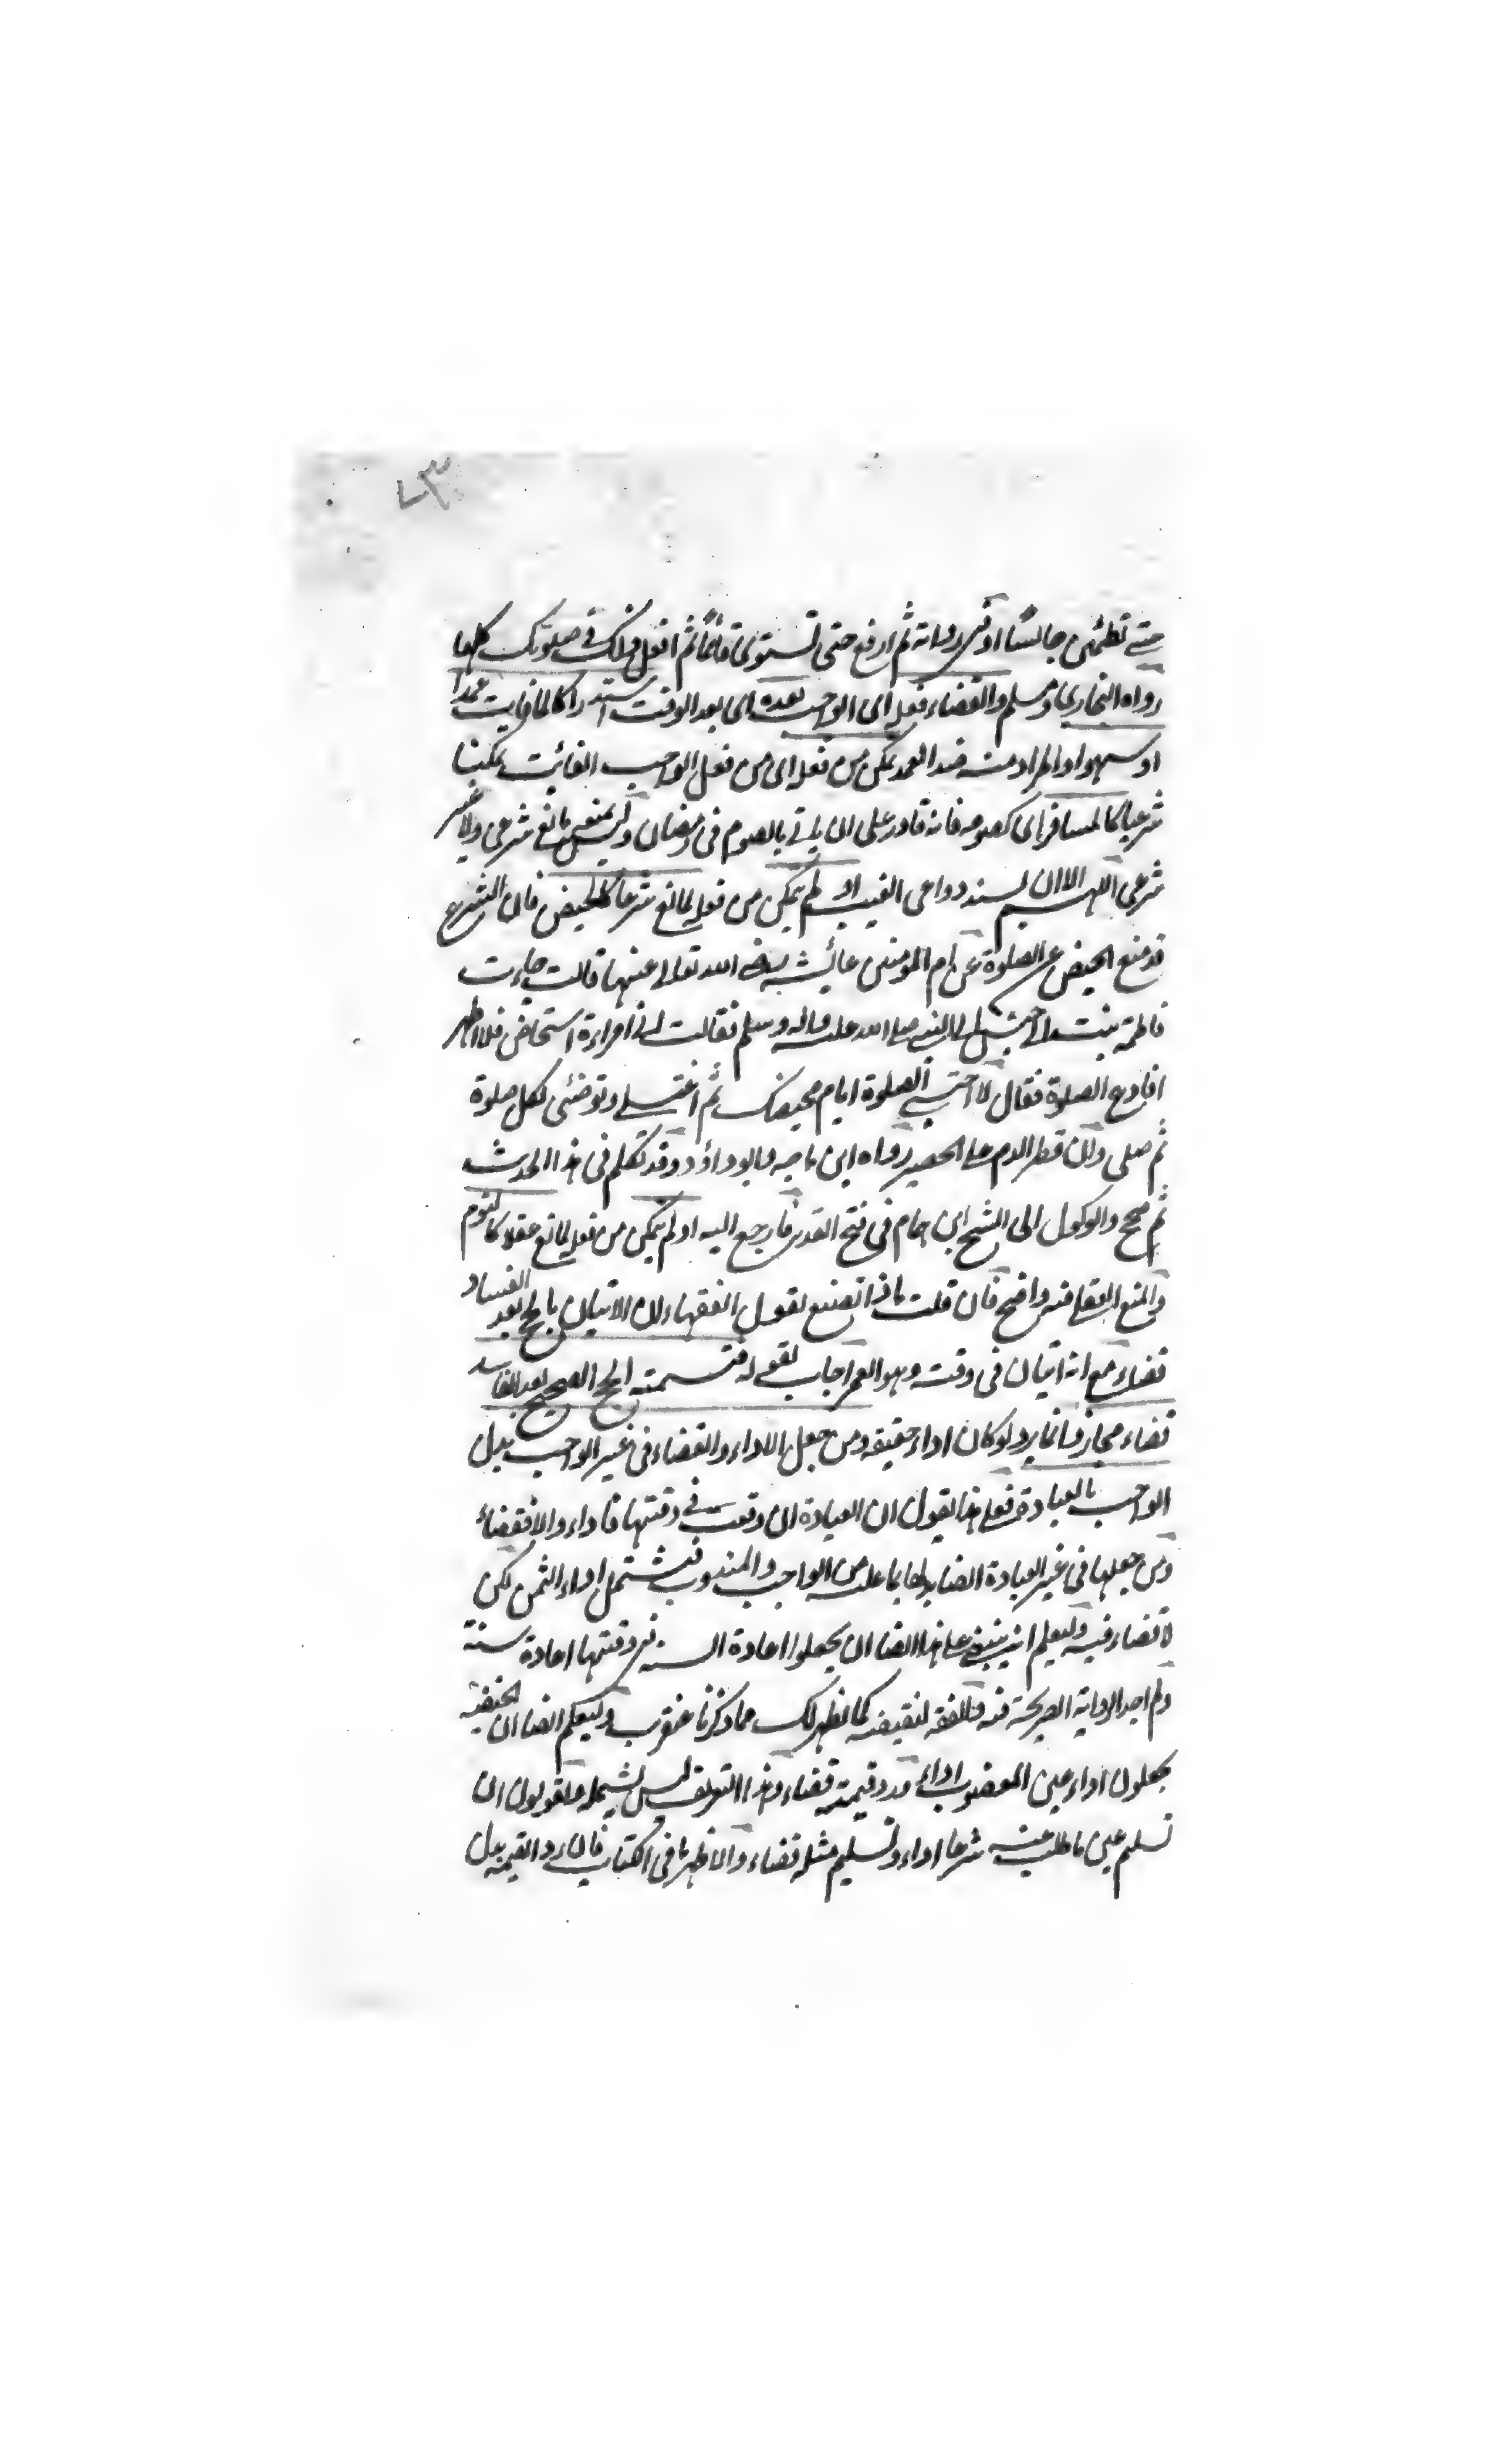 ٧٣
حتى تطمئن جالسًا وفي رواية ثم ارفع حتى تستوى قائمًا ثم افعل ذلك في صلوتك كلها
رواه البخارى ومسلم والقضاء فعله اى الواجب بعده اى بعد الوقت استدراكا لما فات عمدا
او سهوا واطراد منه ضد العمد تمكن من فعله اى من فعل الواجب الفائت تمكينا
شرعيا كالمسافر اى كصومه فانه قادر على ان ياتى بالصوم في رمضان وليس يمنعه مانع شرعى ولا غير
شرعى اللهم الا ان او لم يتمكن من فعله لمانع شرعا كالحيض فان الشرع
قد منع الحيض عن الصلوة عن ام المومنين عائشة رضى الله تعالى عنها قالت جاءت
فاطمة بنت ابى حبيش الى النبى صلى الله عليه واله وسلم فقالت انى امراءة استحاض فلا اطهر
افادع الصلوة فقال لا اجتنبى الصلوة ايام محيضك ثم اغتسلى وتوضئى لكل صلوة
ثم صلى وان قطر الدم على الحصير رواه ابن ماجه وابو داؤد وقد تكلم في هذا الحديث
ثم صحح والوكول الى الشيخ ابن همام في فتح القدير فارجع اليه او لم يتمكن من فعله لمانع عقلا كالنوم
والمنع العقلى فيه واضح فان قلت ماذا تصنع بقول الفقهاء لان الاتيان بالحج بعد الفساد
قضاء مع انه اتيان في وقته وهو العمر اجاب بقوله فتسميته الحج الصحيح بعد الفاسد
قضاء مجاز وانما يرد لو كان اداء حقيقه ومن جعل الاداء والقضاء في غير الواجب بدل
الواجب بالعبادة فعلى هذا يقول ان العبادة ان وقعت في وقتها فاداء والا فقضاء
ومن جعلها في غير العبادة ايضا بدلها بما عليه من الواجب والمندوب فيشتمل اداء الثمن لكن
لا قضاء فيه وليعلم انه ينبغى على هذا ايضا ان يجعلوا اعادة السنة في وقتها اعادة سنة
ولم اجد الرواية الصريحة فيه والفقه لنقيضه كما يظهر لك مما ذكرنا عنقريب وليعلم ايضا ان الحنفية
يجعلون اداء عين المغصوب اداء ورد قيمته قضاء وهذا التعريف ليس يشمله فيقولون ان
تسليم عين ما طلب عنه شرعا اداء وتسليم مثله قضاء والاظهر ما في الكتاب فان رد القيمة بدل